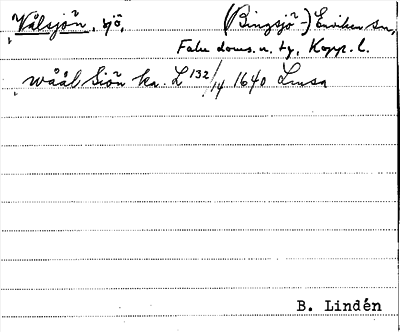 Vålsjön, sjö, (Bingsjö-) Enviken sn,
Falu doms. u. tg, Kopp. l.
wåål Siön ka. L 132/14 1640 Lmsa
B. Lindén